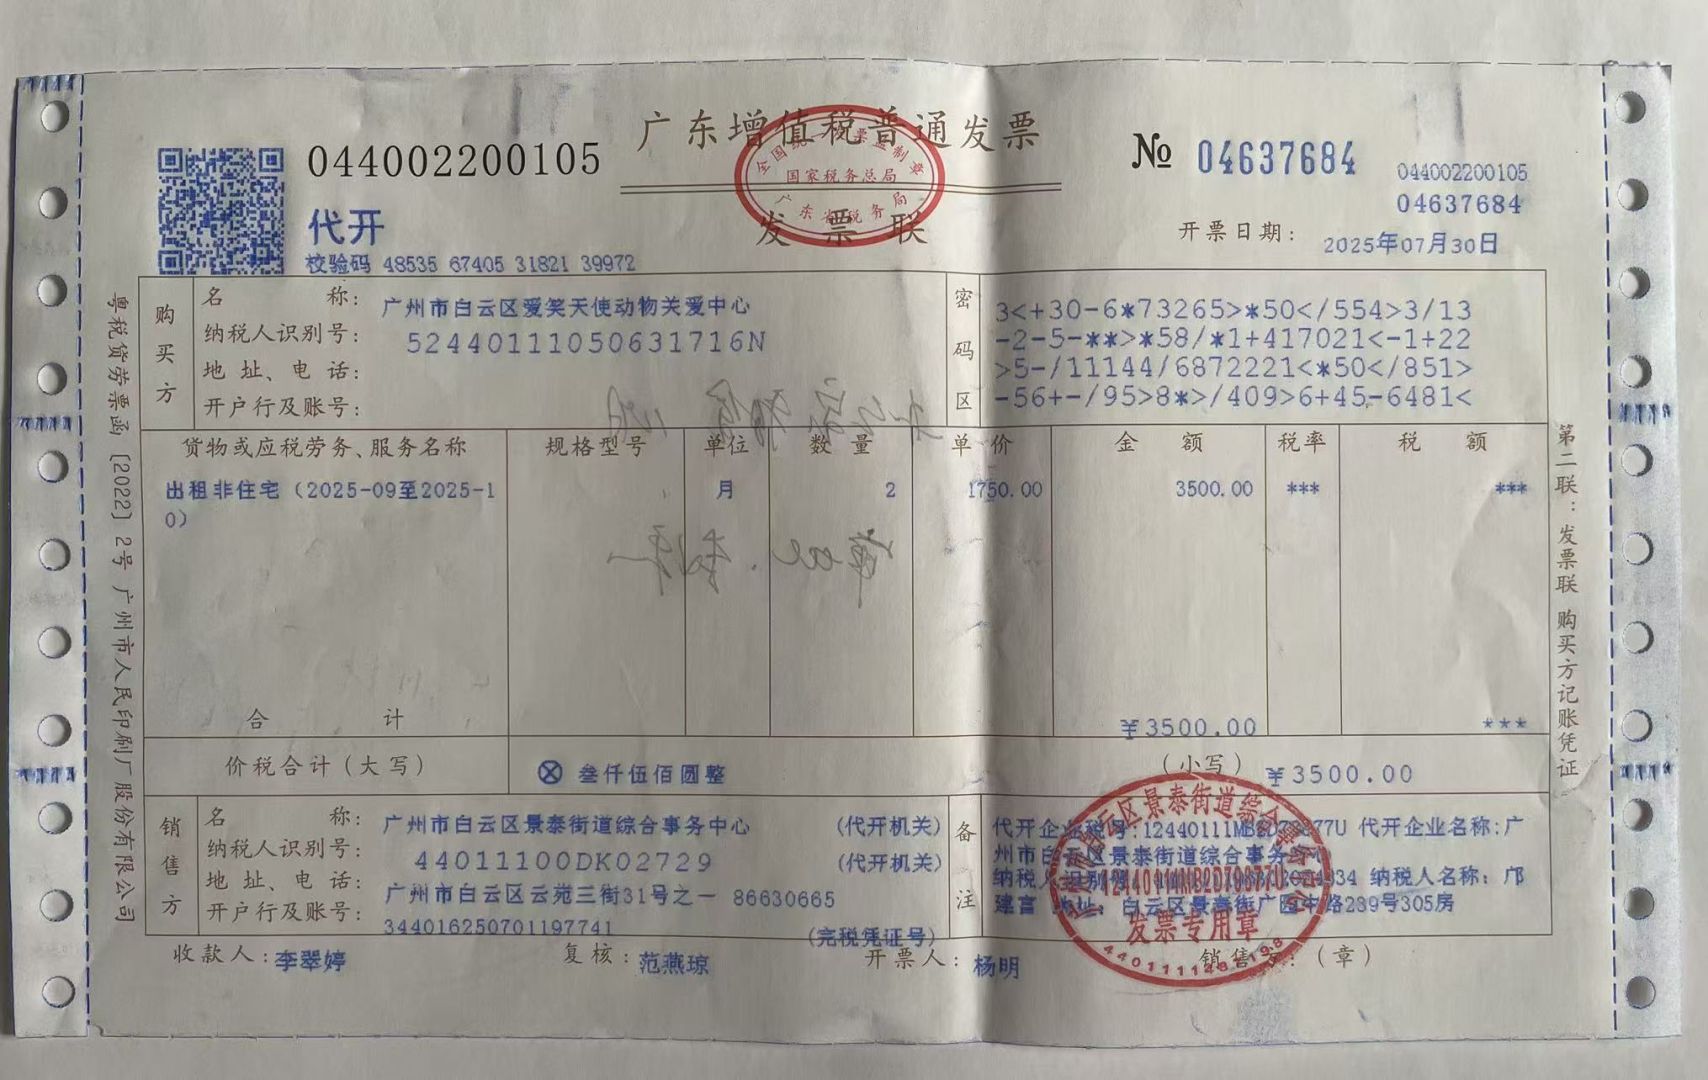 广东增值税普通发票
044002200105
№ 04637684
044002200105
04637684
国家税务总局
代开
发票联
开票日期: 2025年07月30日
校验码 48535 67405 31821 39972
购买方
名称: 广州市白云区爱笑天使动物关爱中心
纳税人识别号: 52440111050631716N
地址、电话:
开户行及账号:
密码区
3<+30-6*73265>*50</554>3/13
-2-5-**>*58/*1+417021<-1+22
>5-/11144/6872221<*50</851>
-56+-/95>8*>/409>6+45-6481<
货物或应税劳务、服务名称 规格型号 单位 数量 单价 金额 税率 税额
出租非住宅（2025-09至2025-1 月 2 1750.00 3500.00 *** ***
0）
合计 ¥3500.00 ***
价税合计（大写） ⊗ 叁仟伍佰圆整 （小写） ¥3500.00
销售方
名称: 广州市白云区景泰街道综合事务中心 (代开机关)
纳税人识别号: 44011100DK02729 (代开机关)
地址、电话: 广州市白云区云苑三街31号之一 86630665
开户行及账号: 344016250701197741 (完税凭证号)
备注
代开企业税号:12440111MB2D79877U 代开企业名称:广
州市白云区景泰街道综合事务中心
纳税人识别号: 纳税人名称: 邝
建言 地址: 白云区景泰街广园中路239号305房
12440111MB2D79877U
发票专用章
收款人: 李翠婷 复核: 范燕琼 开票人: 杨明 销售方: （章）
粤税货劳票函〔2022〕2号 广州市人民印刷厂股份有限公司
第二联: 发票联 购买方记账凭证